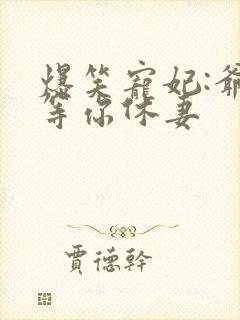 爆笑寵妃:爺
等你休妻
賈德幹